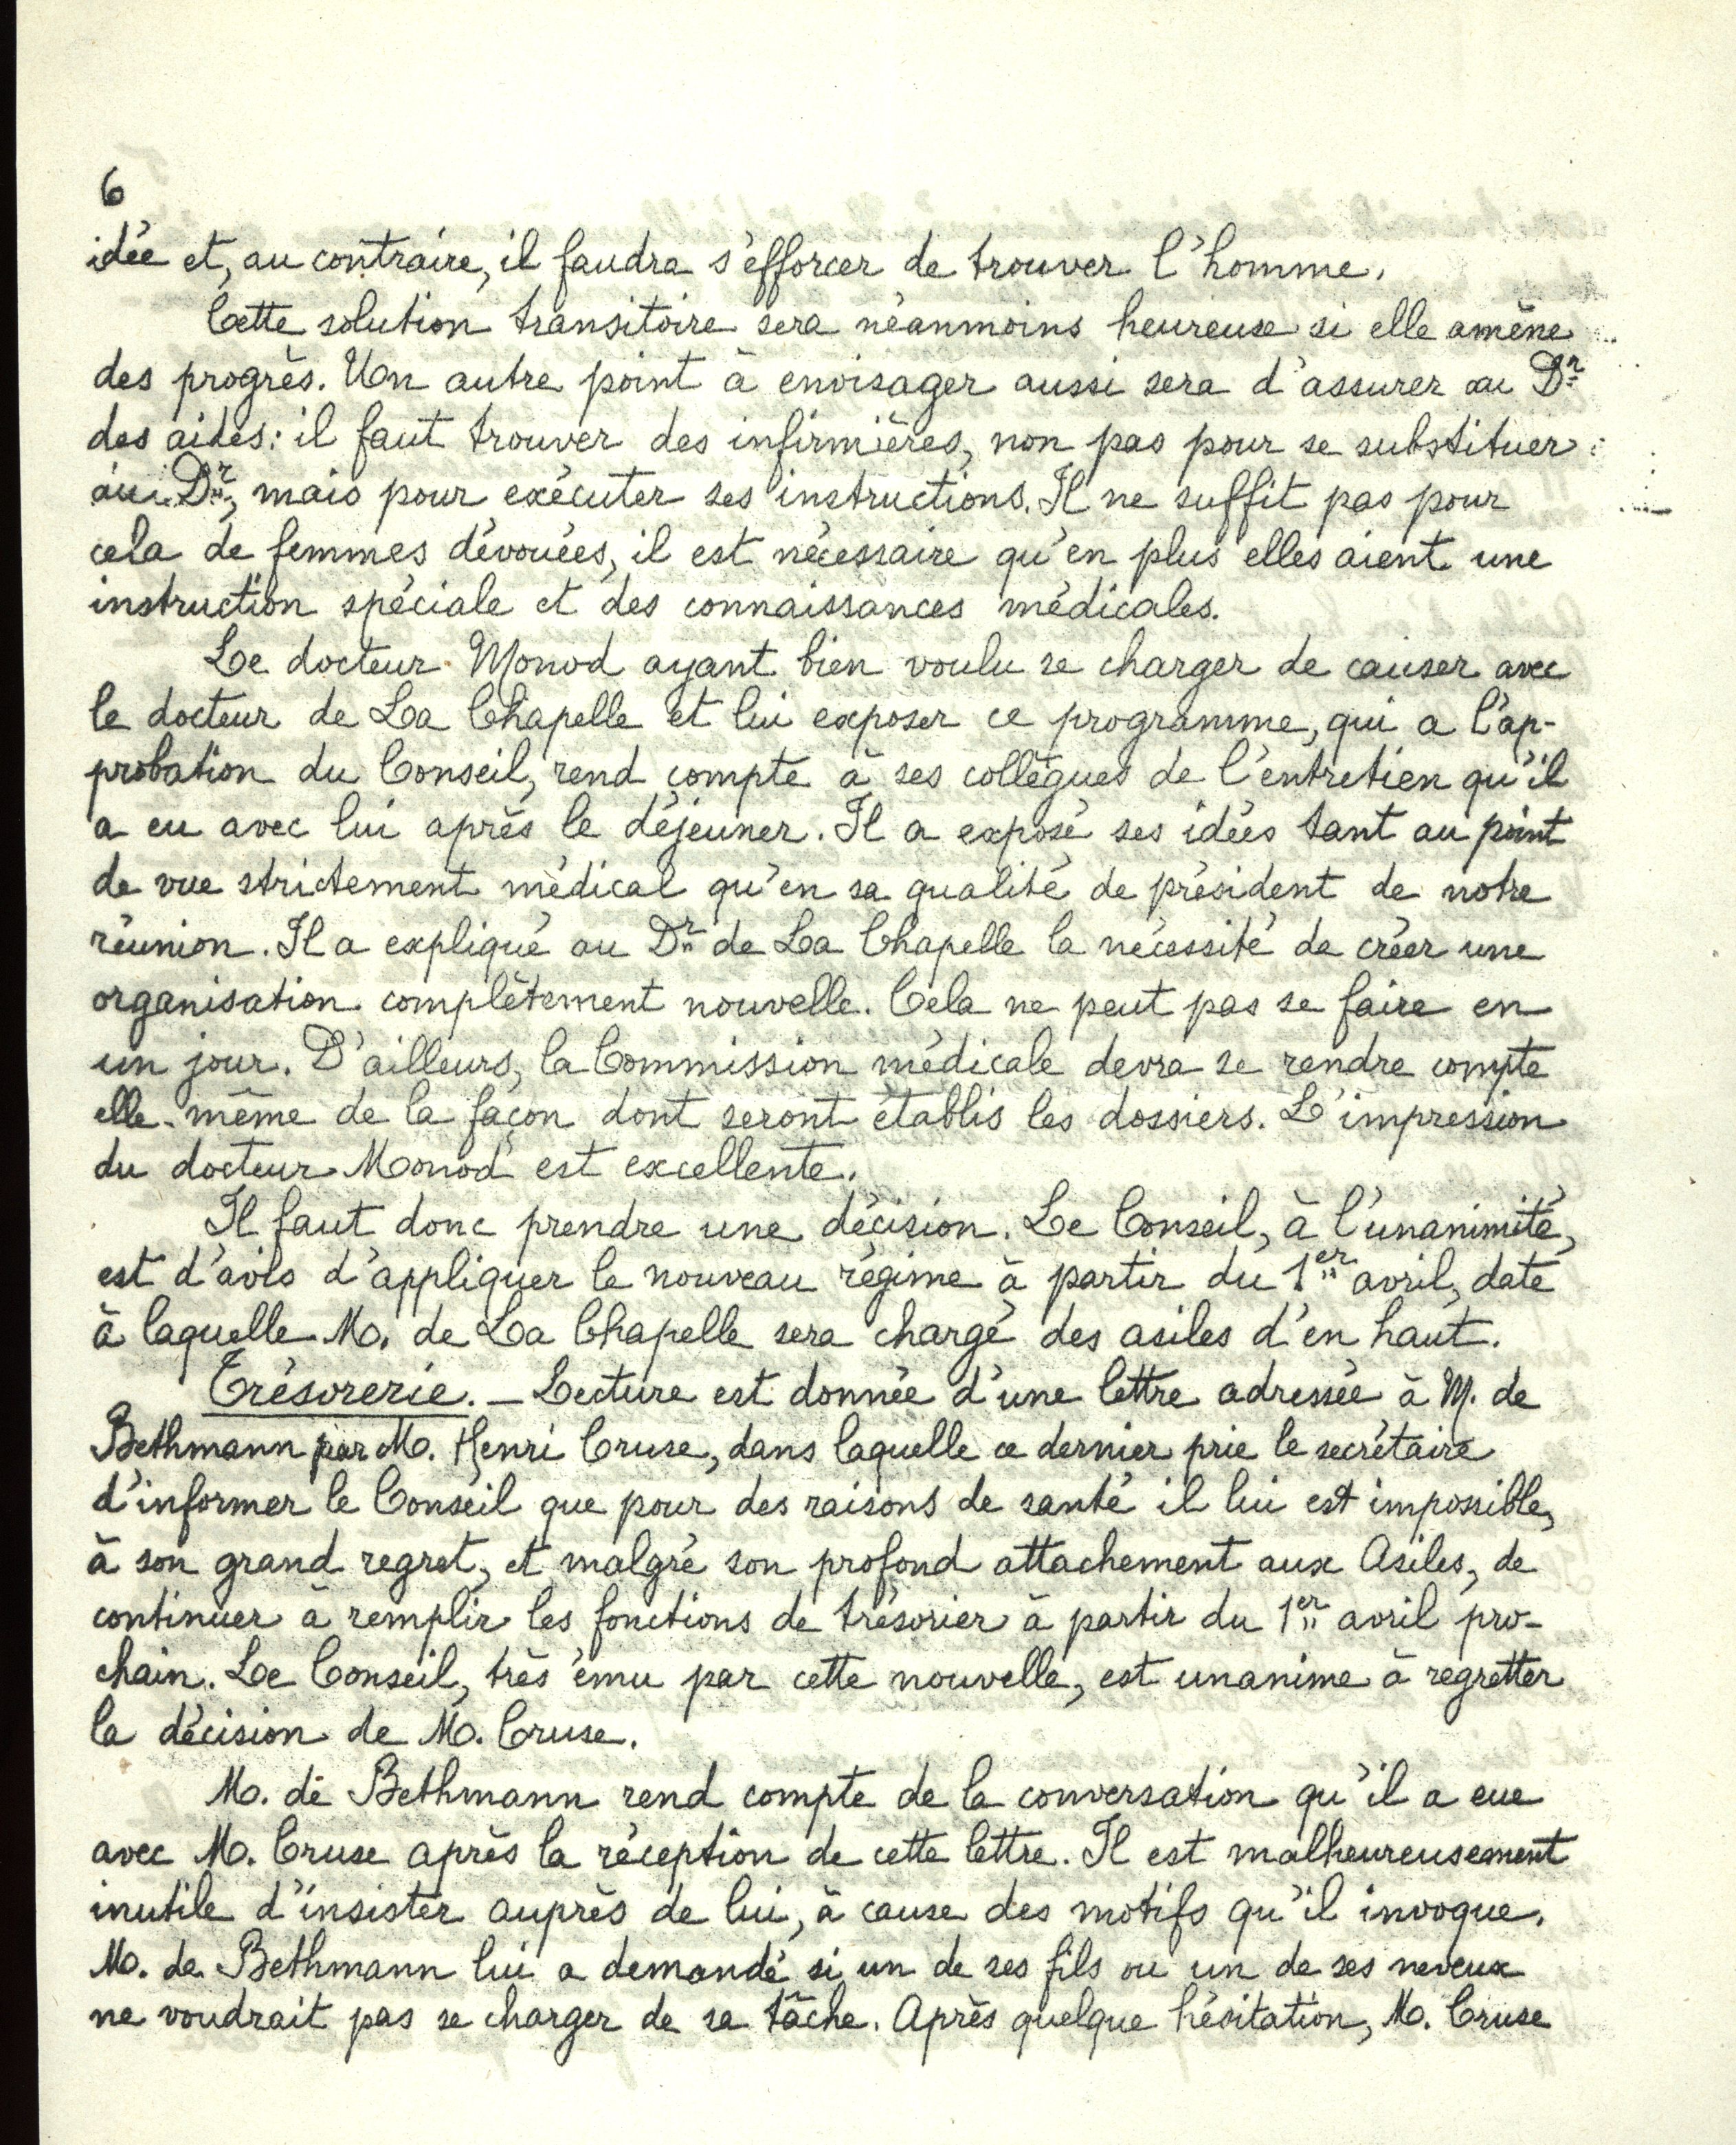 6
idée et, au contraire, il faudra s'efforcer de trouver l'homme.
Cette solution transitoire sera néanmoins heureuse si elle amène
des progrès. Un autre point à envisager aussi sera d'assurer au Dr
des aides : il faut trouver des infirmières, non pas pour se substituer
au Dr, mais pour exécuter ses instructions. Il ne suffit pas pour
cela de femmes dévouées, il est nécessaire qu'en plus elles aient une
instruction spéciale et des connaissances médicales.
Le docteur Monod ayant bien voulu se charger de causer avec
le docteur de La Chapelle et lui exposer ce programme, qui a l'ap-
probation du Conseil, rend compte à ses collègues de l'entretien qu'il
a eu avec lui après le déjeuner. Il a exposé ses idées tant au point
de vue strictement médical qu'en sa qualité de président de notre
réunion. Il a expliqué au Dr de La Chapelle la nécessité de créer une
organisation complètement nouvelle. Cela ne peut pas se faire en
un jour. D'ailleurs, la Commission médicale devra se rendre compte
elle-même de la façon dont seront établis les dossiers. L'impression
du docteur Monod est excellente.
Il faut donc prendre une décision. Le Conseil, à l'unanimité,
est d'avis d'appliquer le nouveau régime à partir du 1er avril, date
à laquelle M. de La Chapelle sera chargé des asiles d'en haut.
Trésorerie. – Lecture est donnée d'une lettre adressée à M. de
Bethmann par M. Henri Cruse, dans laquelle ce dernier prie le secrétaire
d'informer le Conseil que pour des raisons de santé il lui est impossible,
à son grand regret, et malgré son profond attachement aux Asiles, de
continuer à remplir les fonctions de trésorier à partir du 1er avril pro-
chain. Le Conseil, très ému par cette nouvelle, est unanime à regretter
la décision de M. Cruse.
M. de Bethmann rend compte de la conversation qu'il a eue
avec M. Cruse après la réception de cette lettre. Il est malheureusement
inutile d'insister auprès de lui, à cause des motifs qu'il invoque.
M. de Bethmann lui a demandé si un de ses fils ou un de ses neveux
ne voudrait pas se charger de sa tâche. Après quelque hésitation, M. Cruse